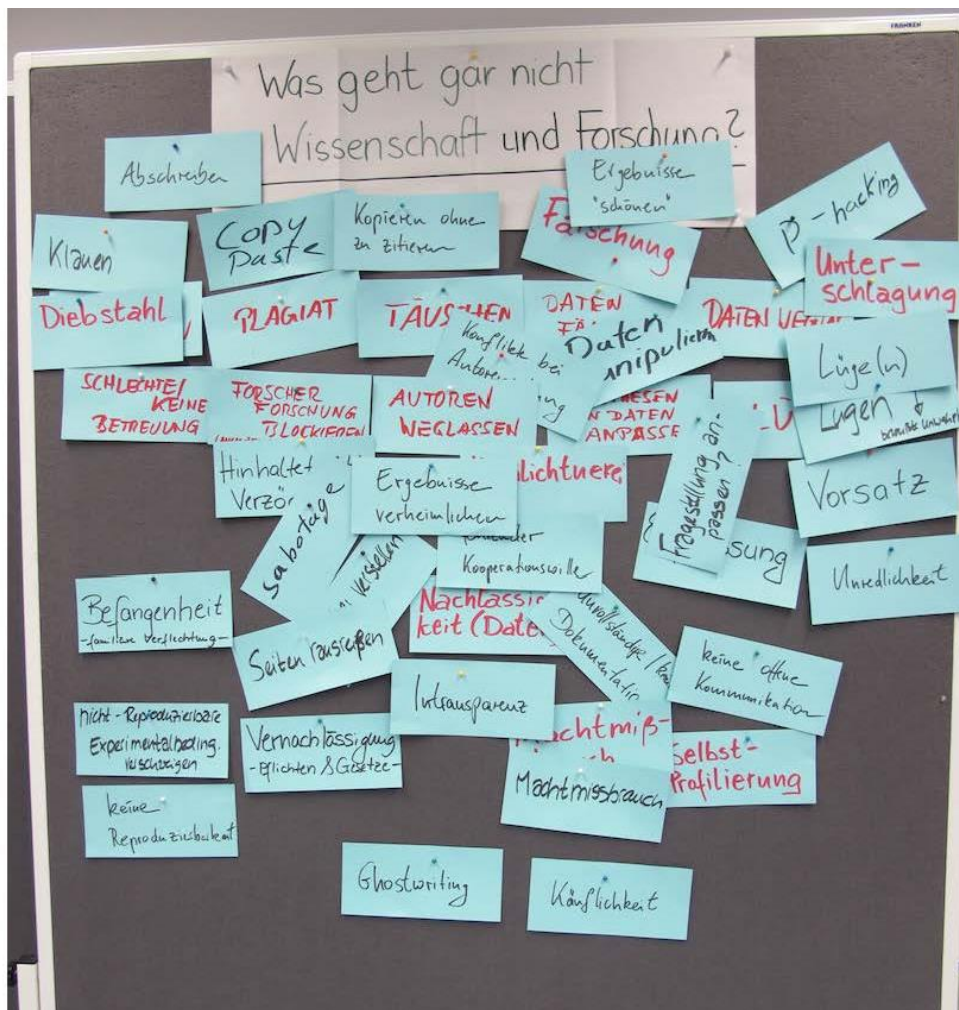 FRANKEN
Was geht gar nicht
Wissenschaft und Forschung?
Abschreiben
Ergebnisse
"schönen"
p-hacking
Klauen
Copy
Paste
Kopieren ohne
zu zitieren
Fälschung
Unter-
schlagung
Diebstahl
PLAGIAT
TÄUSCHEN
DATEN
Daten
DATEN
Konflikte bei
Lüge(n)
SCHLECHTE/
KEINE
BETREUUNG
FORSCHER
FORSCHUNG
BLOCKIEREN
AUTOREN
WEGLASSEN
DATEN
Lügen
bewusste
Fragestellung an-
passen?
Hinhalte
Ergebnisse
verheimlichen
Vorsatz
Sabotage
verstellen
Kooperationswille
Unredlichkeit
Befangenheit
- familiäre Verflechtung -
Seiten rausreißen
Nachlässig
keit (Date
unvollständige /
Dokumentation
keine offene
Kommunikation
Intransparenz
nicht-Reproduzierbare
Experimentalbeding.
verschweigen
Vernachlässigung
- Pflichten & Gesetze -
Machtmiß-
Machtmissbrauch
Selbst-
Profilierung
keine
Reproduzierbarkeit
Ghostwriting
Käuflichkeit